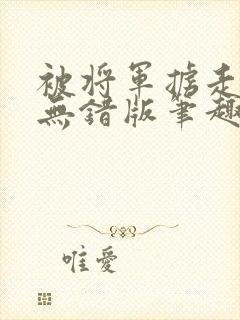 被将軍掳走
無錯版筆趣
唯愛